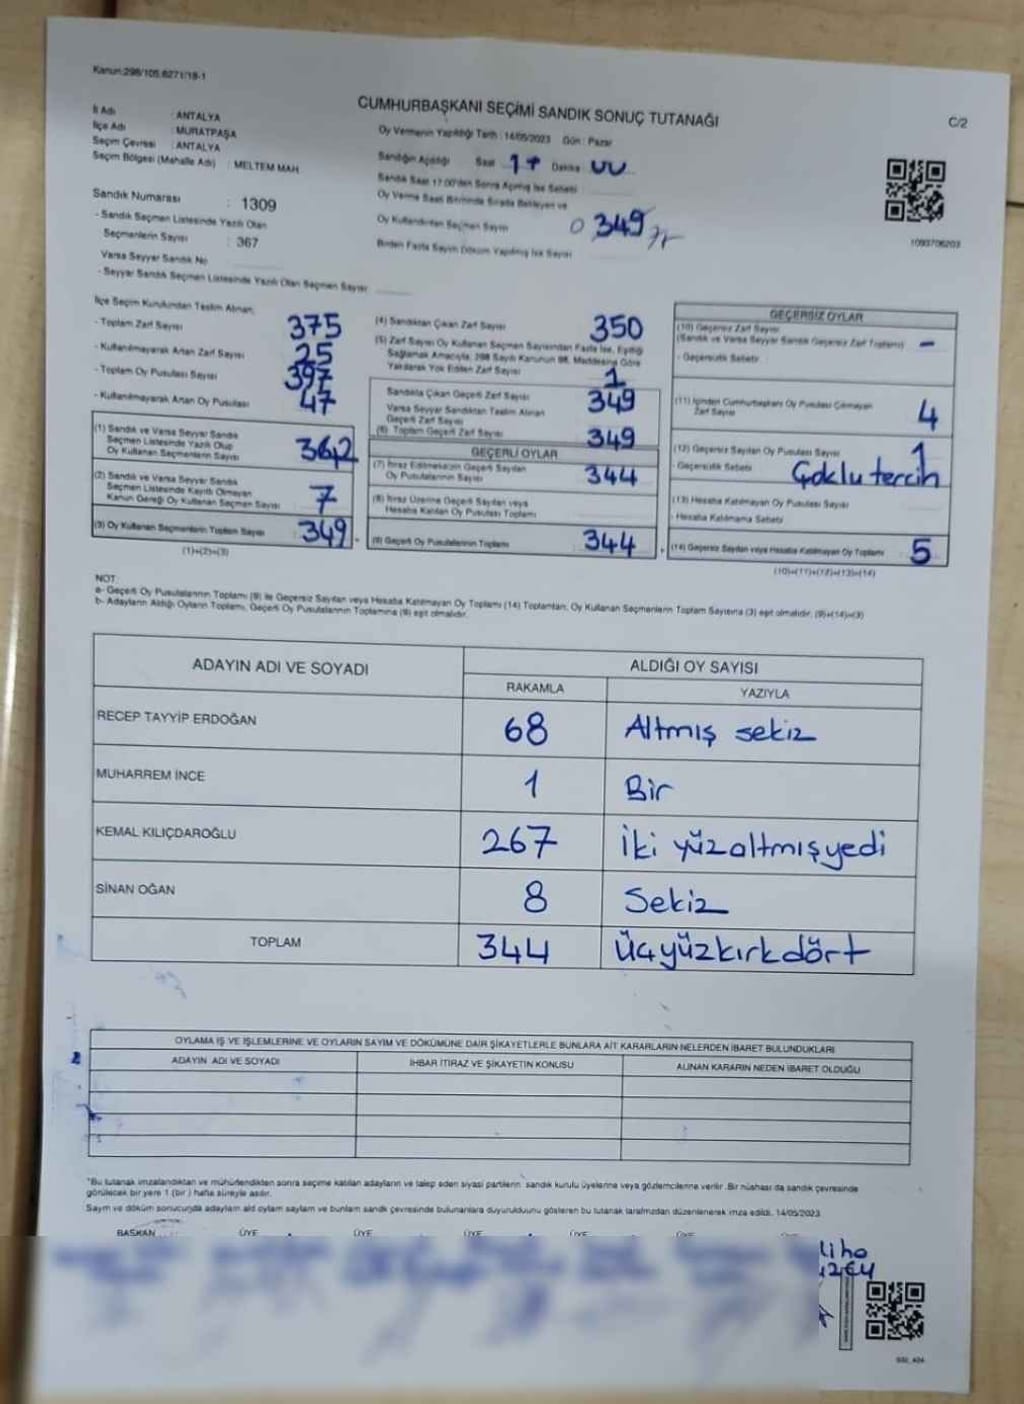 Kanun:298/105.6271/18-1
CUMHURBAŞKANI SEÇİMİ SANDIK SONUÇ TUTANAĞI
C/2
İl Adı : ANTALYA
İlçe Adı : MURATPAŞA
Seçim Çevresi : ANTALYA
Seçim Bölgesi (Mahalle Adı) : MELTEM MAH.
Oy Vermenin Yapıldığı Tarih : 14/05/2023 Gün : Pazar
Sandığın Açıldığı Saat 17 Dakika 00
Sandık Saat 17.00'den Sonra Açılmış İse Sebebi
Oy Verme Saati Bitiminde Sırada Bekleyen ve
Oy Kullandırılan Seçmen Sayısı 0 349
Birden Fazla Sayım Döküm Yapılmış İse Sayısı
1093706203
Sandık Numarası : 1309
- Sandık Seçmen Listesinde Yazılı Olan
Seçmenlerin Sayısı : 367
Varsa Seyyar Sandık No
- Seyyar Sandık Seçmen Listesinde Yazılı Olan Seçmen Sayısı
İlçe Seçim Kurulundan Teslim Alınan;
- Toplam Zarf Sayısı 375
- Kullanılmayarak Artan Zarf Sayısı 25
- Toplam Oy Pusulası Sayısı 397
- Kullanılmayarak Artan Oy Pusulası 47
(1) Sandık ve Varsa Seyyar Sandık
Seçmen Listesinde Yazılı Olup
Oy Kullanan Seçmenlerin Sayısı 342
(2) Sandık ve Varsa Seyyar Sandık
Seçmen Listesinde Kayıtlı Olmayan
Kanun Gereği Oy Kullanan Seçmen Sayısı 7
(3) Oy Kullanan Seçmenlerin Toplam Sayısı 349
(1)+(2)=(3)
(4) Sandıktan Çıkan Zarf Sayısı 350
(5) Zarf Sayısı Oy Kullanan Seçmen Sayısından Fazla İse, Eşitliği
Sağlamak Amacıyla, 298 Sayılı Kanunun 98. Maddesine Göre
Yakılarak Yok Edilen Zarf Sayısı 1
Sandıkta Çıkan Geçerli Zarf Sayısı 349
Varsa Seyyar Sandıktan Teslim Alınan
Geçerli Zarf Sayısı
(6) Toplam Geçerli Zarf Sayısı 349
GEÇERLİ OYLAR
(7) İtiraz Edilmeksizin Geçerli Sayılan
Oy Pusulalarının Sayısı 344
(8) İtiraz Üzerine Geçerli Sayılan veya
Hesaba Katılan Oy Pusulası Toplamı
(9) Geçerli Oy Pusulalarının Toplamı 344
GEÇERSİZ OYLAR
(10) Geçersiz Zarf Sayısı
(Sandık ve Varsa Seyyar Sandık Geçersiz Zarf Toplamı) -
- Geçersizlik Sebebi
(11) İçinden Cumhurbaşkanı Oy Pusulası Çıkmayan
Zarf Sayısı 4
(12) Geçersiz Sayılan Oy Pusulası Sayısı 1
- Geçersizlik Sebebi Çoklu tercih
(13) Hesaba Katılmayan Oy Pusulası Sayısı
- Hesaba Katılmama Sebebi
(14) Geçersiz Sayılan veya Hesaba Katılmayan Oy Toplamı 5
(10)+(11)+(12)+(13)=(14)
NOT:
a- Geçerli Oy Pusulalarının Toplamı (9) ile Geçersiz Sayılan veya Hesaba Katılmayan Oy Toplamı (14) Toplamları, Oy Kullanan Seçmenlerin Toplam Sayısına (3) eşit olmalıdır. (9)+(14)=(3)
b- Adayların Aldığı Oyların Toplamı, Geçerli Oy Pusulalarının Toplamına (9) eşit olmalıdır.
ADAYIN ADI VE SOYADI
ALDIĞI OY SAYISI
RAKAMLA YAZIYLA
RECEP TAYYİP ERDOĞAN 68 Altmış sekiz
MUHARREM İNCE 1 Bir
KEMAL KILIÇDAROĞLU 267 İki yüzaltmışyedi
SİNAN OĞAN 8 Sekiz
TOPLAM 344 Üçyüzkırkdört
OYLAMA İŞ VE İŞLEMLERİNE VE OYLARIN SAYIM VE DÖKÜMÜNE DAİR ŞİKAYETLERLE BUNLARA AİT KARARLARIN NELERDEN İBARET BULUNDUKLARI
ADAYIN ADI VE SOYADI İHBAR İTİRAZ VE ŞİKAYETİN KONUSU ALINAN KARARIN NEDEN İBARET OLDUĞU
*Bu tutanak imzalandıktan ve mühürlendikten sonra seçime katılan adayların ve talep eden siyasi partilerin sandık kurulu üyelerine veya gözlemcilerine verilir. Bir nüshası da sandık çevresinde
görülecek bir yere 1 (bir) hafta süreyle asılır.
Sayım ve döküm sonucunda adayların aldığı oyların sayılarını ve bunların sandık çevresinde bulunanlara duyurulduğunu gösteren bu tutanak tarafımızdan düzenlenerek imza edildi. 14/05/2023
BAŞKAN ÜYE ÜYE ÜYE ÜYE ÜYE